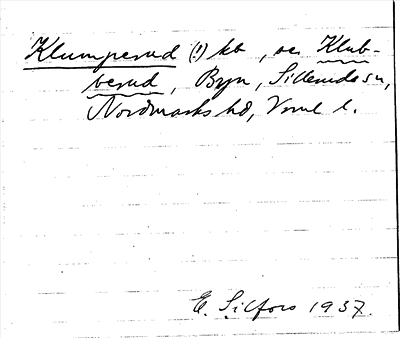 Klumperud (!) kb, se Klub-
berud, Byn, Silleruds sn,
Nordmarks hd, Vrml l.
E. Silfors 1937.